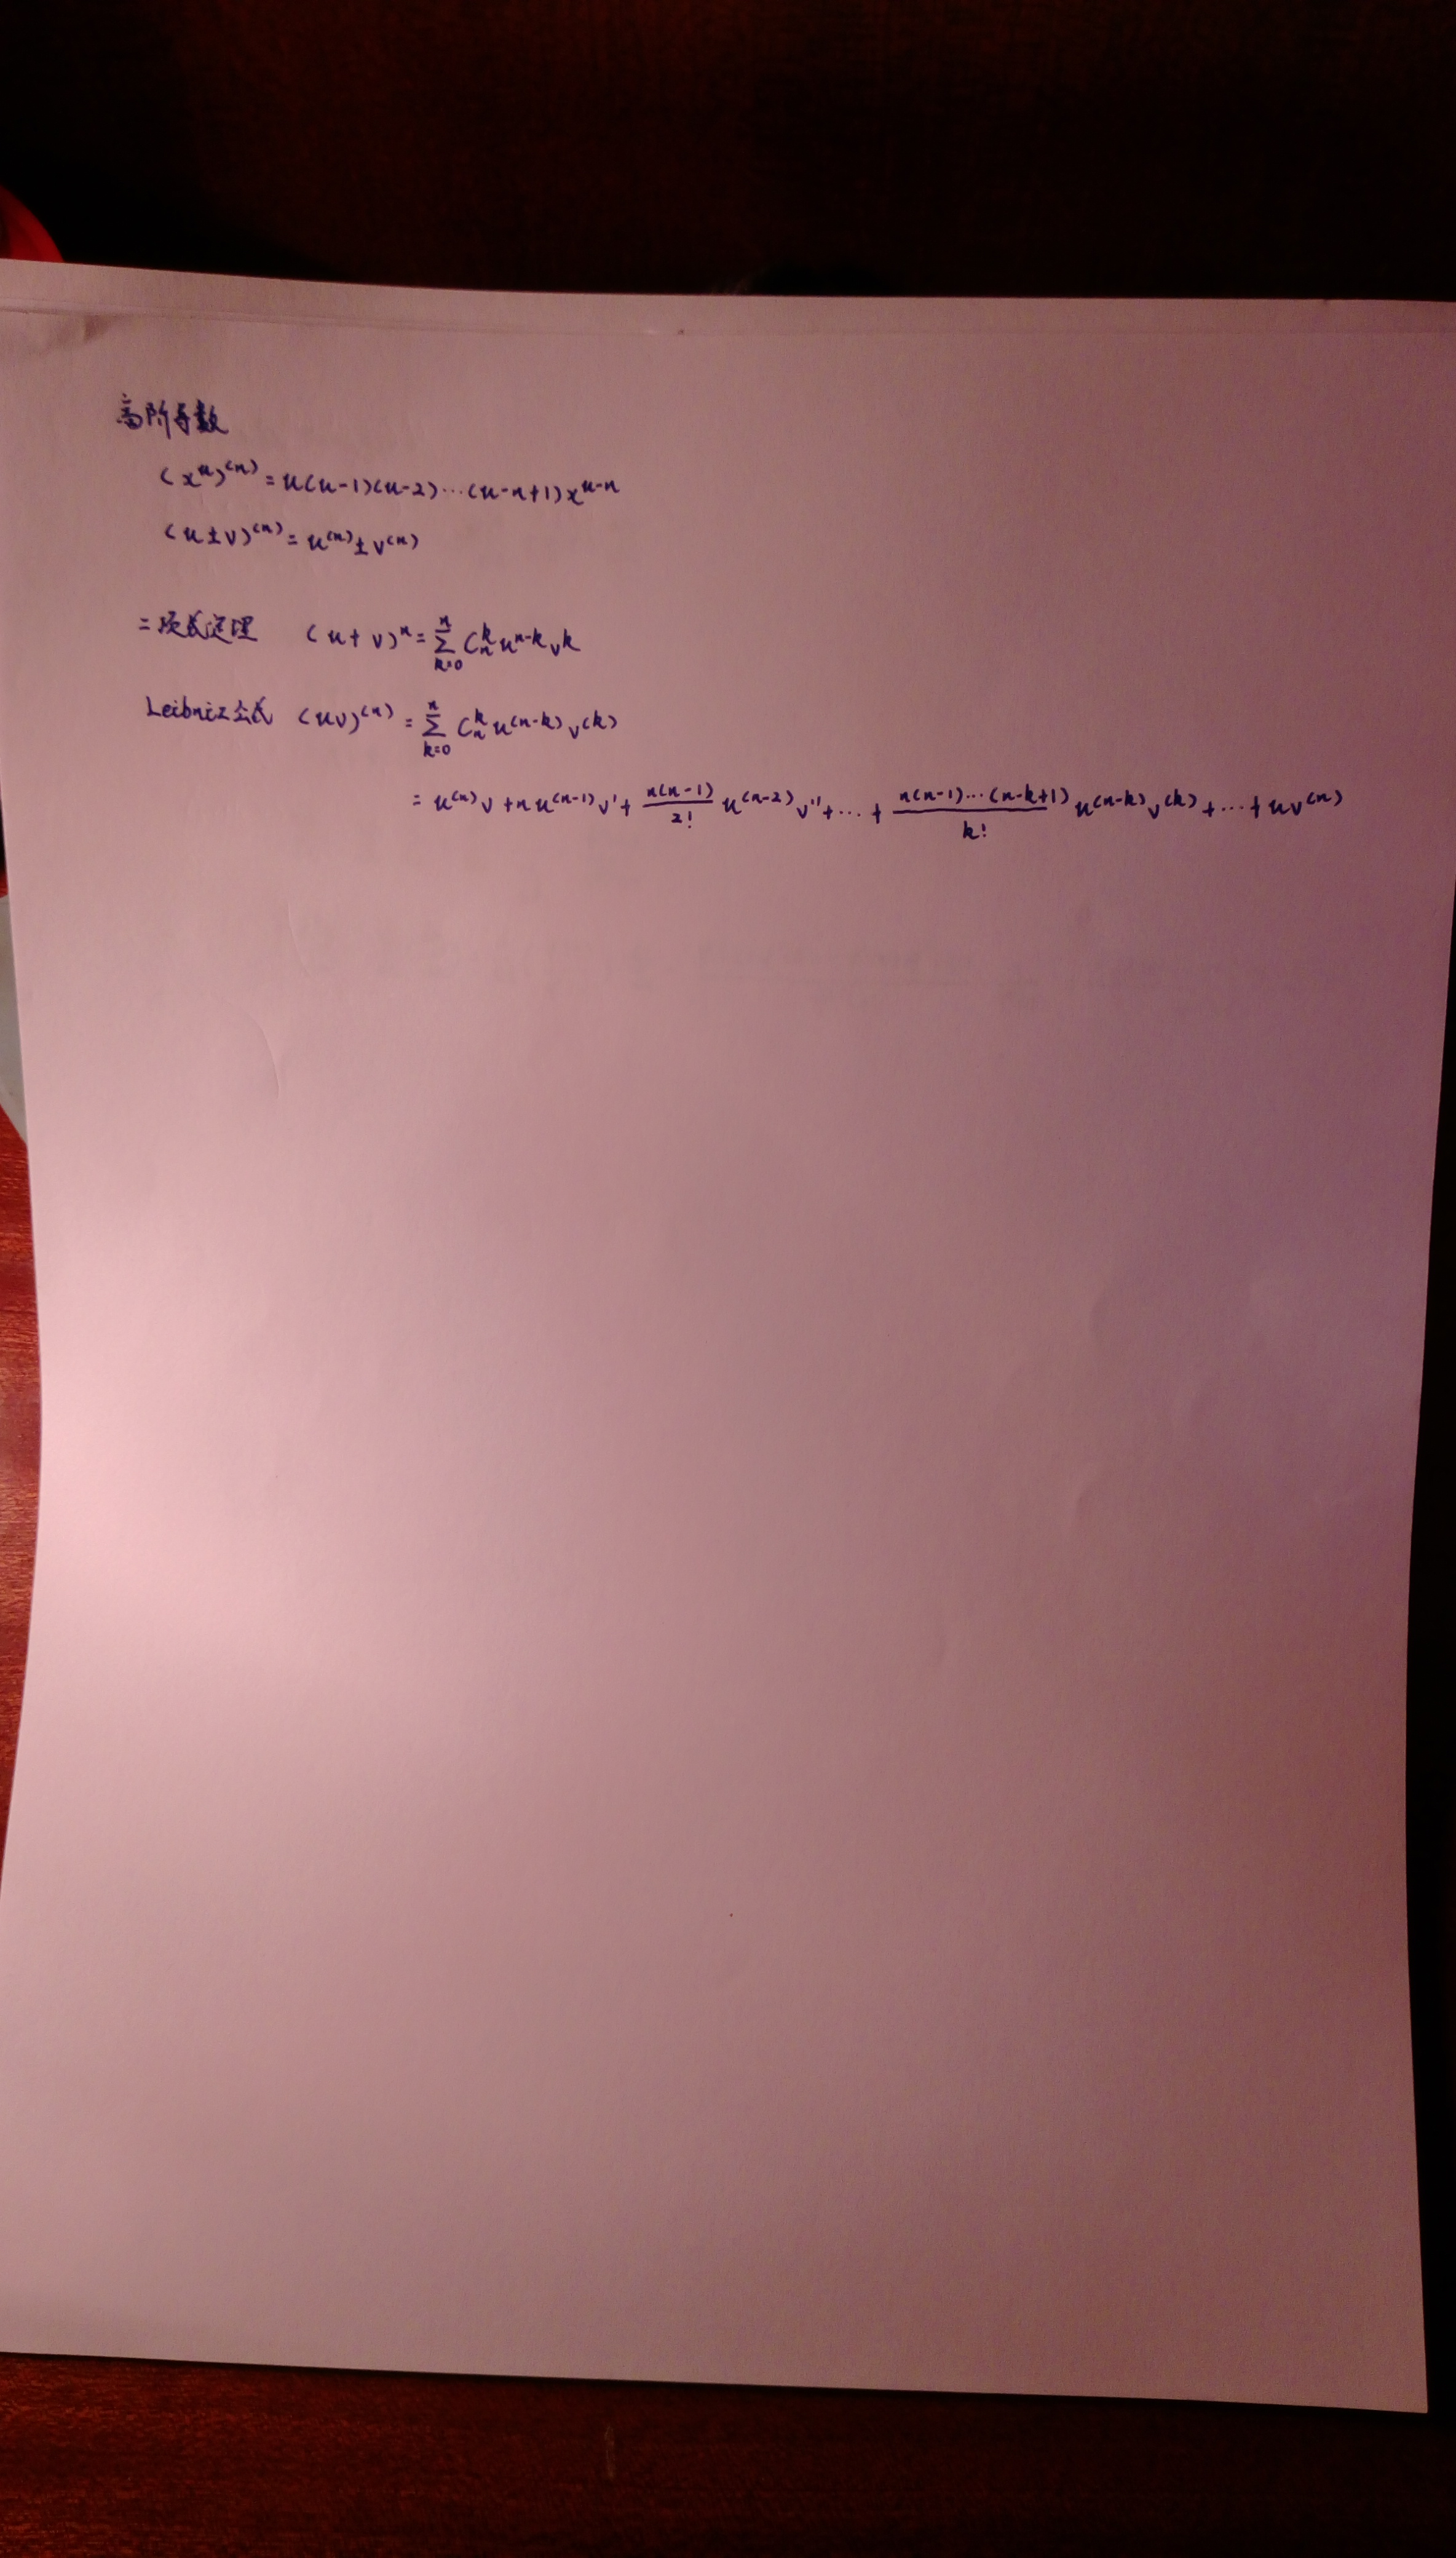 高阶导数
(x^u)^(n) = u(u-1)(u-2)⋯(u-n+1)x^{u-n}
(u±v)^(n) = u^(n) ± v^(n)
二项式定理 (u+v)^n = ∑_{k=0}^{n} C_n^k u^{n-k} v^k
Leibniz公式 (uv)^(n) = ∑_{k=0}^{n} C_n^k u^(n-k) v^(k)
= u^(n)v + nu^(n-1)v' + \frac{n(n-1)}{2!} u^(n-2)v'' + ⋯ + \frac{n(n-1)⋯(n-k+1)}{k!} u^(n-k)v^(k) + ⋯ + uv^(n)